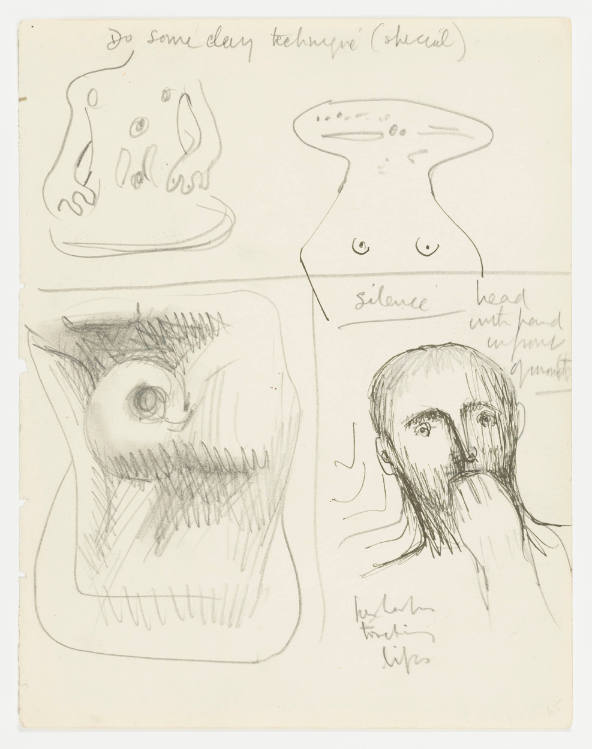 Do some day technique (special)
silence
head
with hand
in front
of mouth
touching
lips